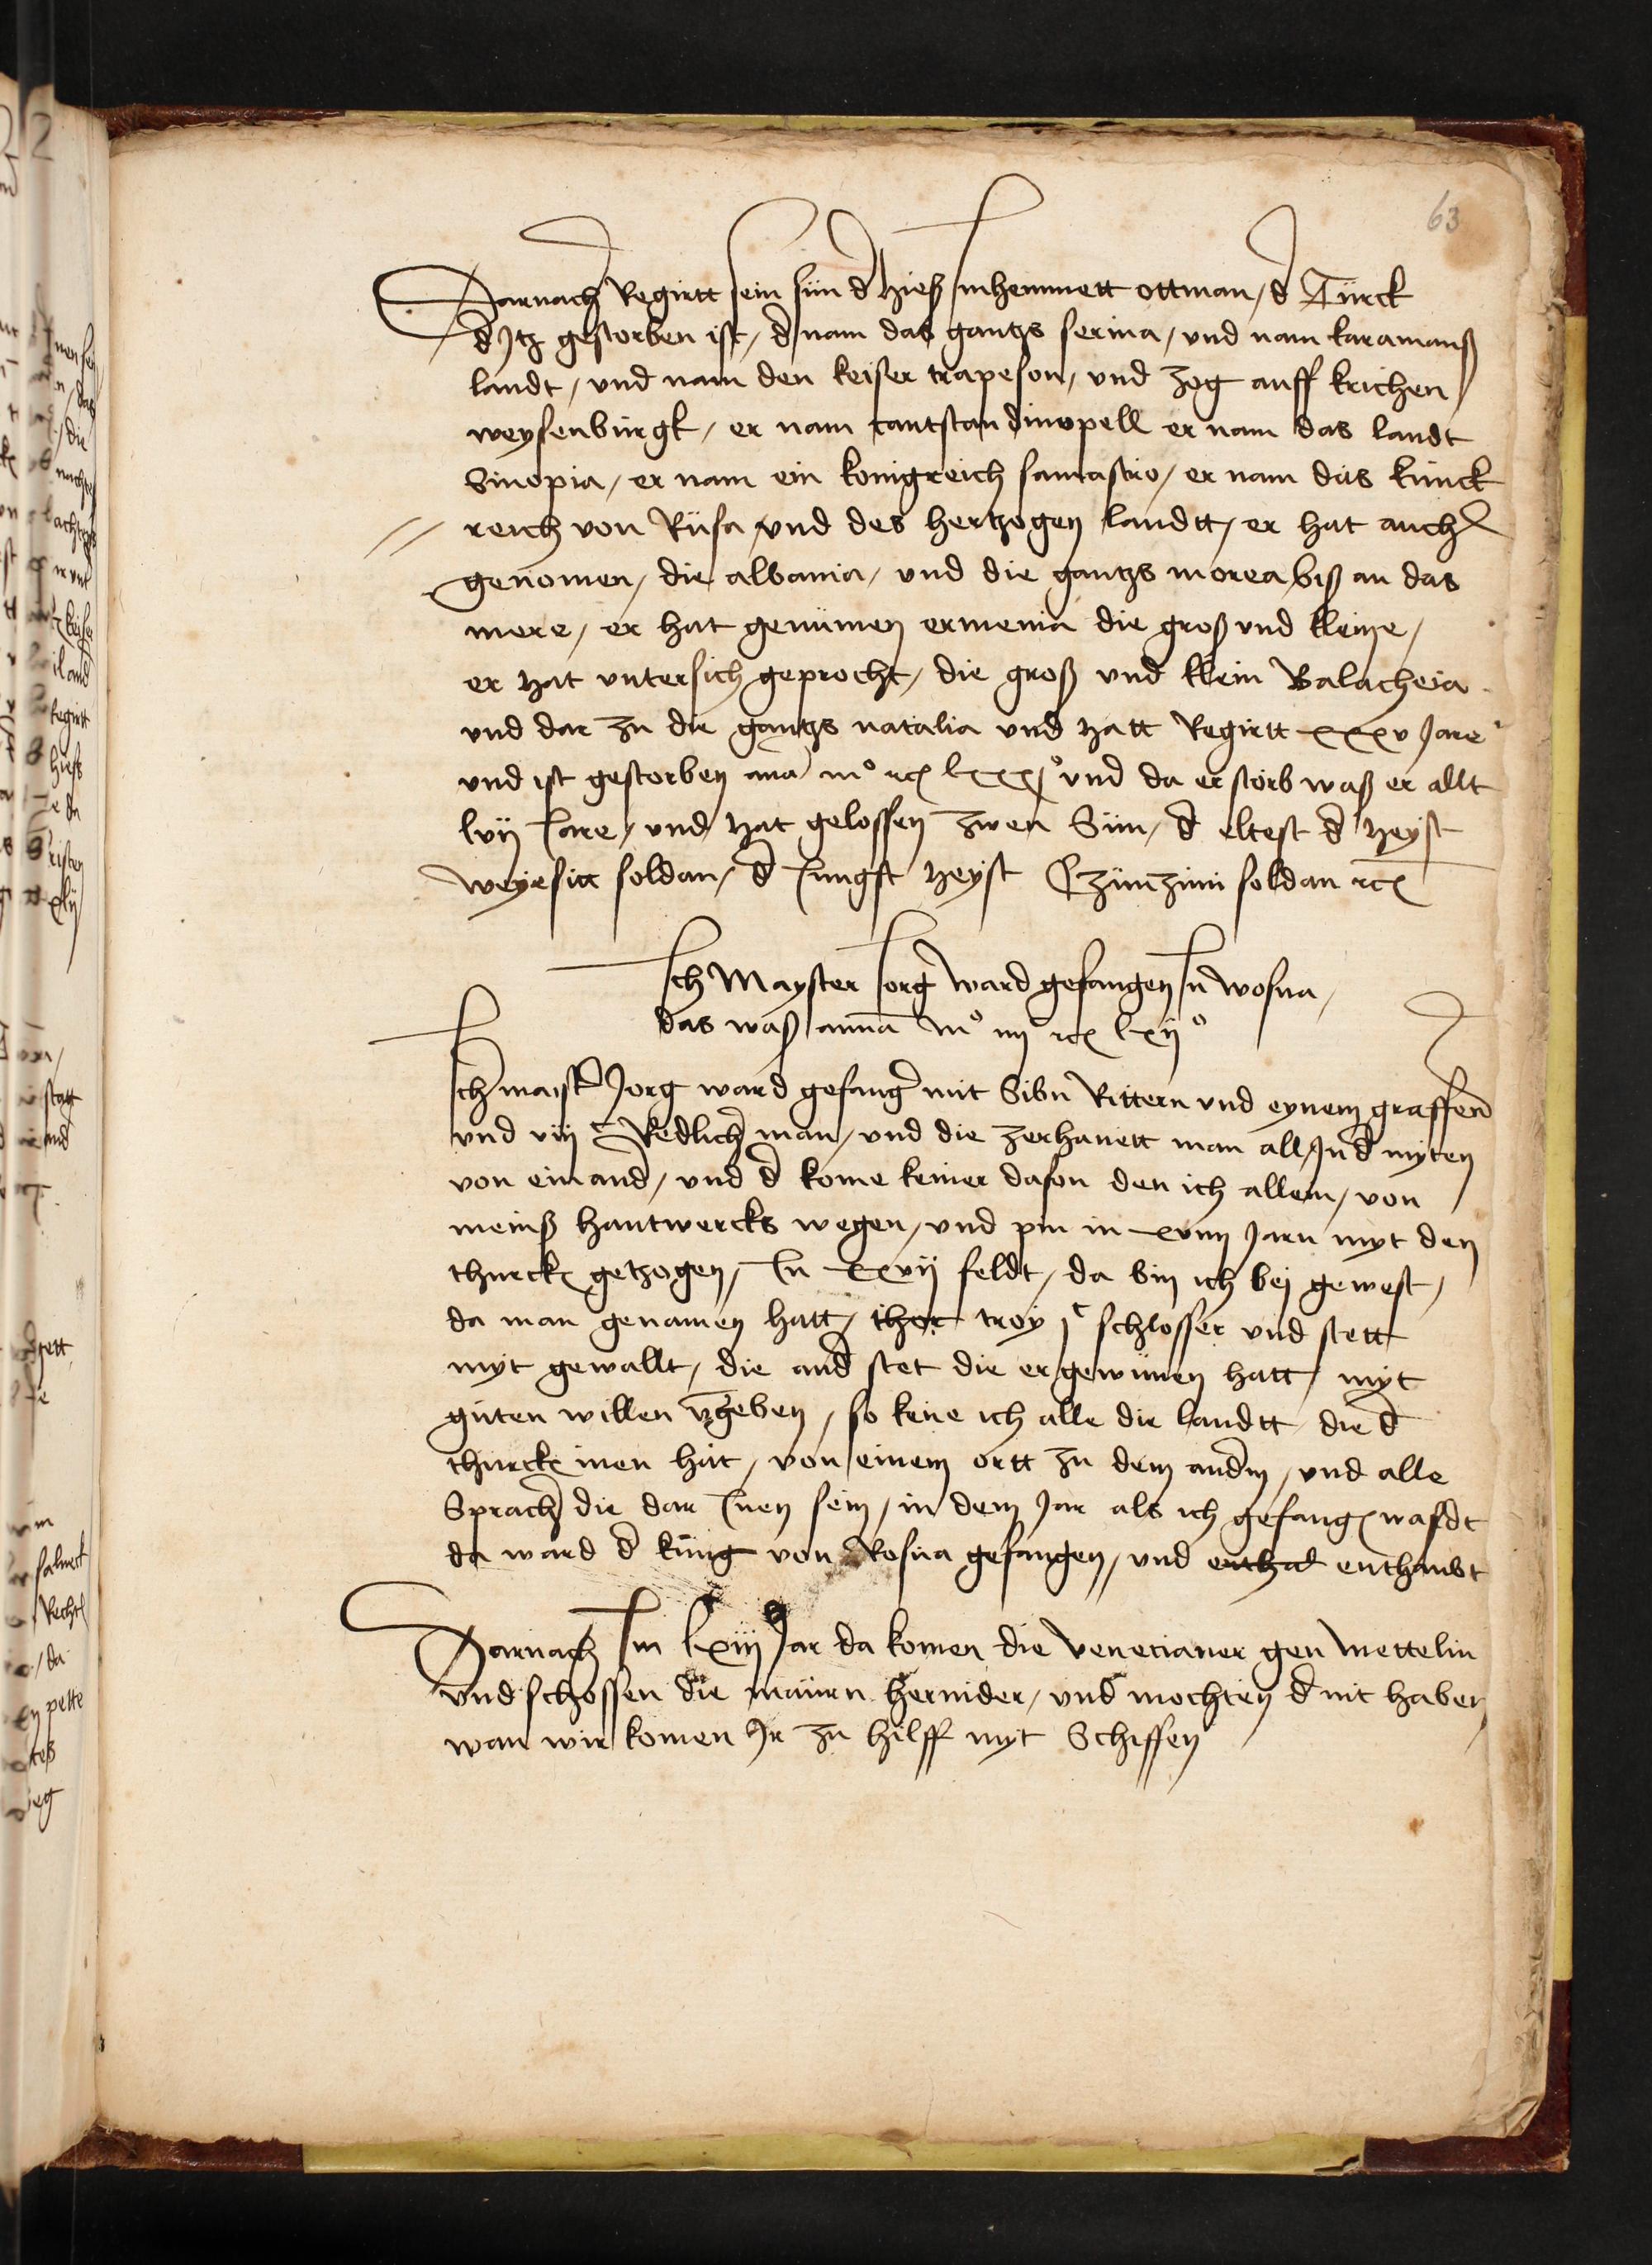 63
Darnach Regirtt sein sün d' hieß Imhemmett ottman / d' Türck
d' Jtz gestorben ist / d' nam das gantzs serma / vnd nam karamanß
landt / vnd nam den keiser trapeson / vnd zog auff krichen
weysenbürgk / er nam cantstandinopell er nam das landt
Sinopia / er nam ein konigreich samastro / er nam das künck
reich von Rüsa / vnd des hertzogen landtt / er hat auch
genomen / die albania / vnd die gantzs morea biß an das
mere / er hat genümen ermenia die groß vnd kleine /
er hat vntersich geprocht / die groß vnd klein Balacheia
vnd dar zu die gantzs natalia vnd hatt Regirtt xxxv Jare
vnd ist gestorben ana mº lxxxjº vnd da er storb waß er allt
lvij Jare / vnd hat gelossen zwen Sün / d' eltest d' heyst
weyesitt soldan / d' Jungst heyst Czimzimi soldan
Ich Mayster Jorg ward gefangen In wosna /
das waß anna mº iiij lxijº
Ich maist' Jorg ward gefang' mit Sibn Rittern vnd eynem graffen
vnd viij c Redlich' man / vnd die zerhauett man all / In d' myten
von einand' / vnd d' kome keiner dafon den ich allein / von
meinß hantwercks wegen / vnd pin in xviiij Jarn myt den
thurck getzogen / In xxvij feldt / da bin ich bej gewest /
da man genamen hatt / thor troy j c schlosser vnd stett
myt gewallt / die and' stet die er gewünen hatt / myt
güten willen v'geben / so kene ich alle die landtt die d'
thurck inen hat / von einem ortt zu dem andm / vnd alle
Sprach' die dar Inen sein / in dem Jar als ich gefang wardt
da ward d' küng von Wosna gefangen / vnd enthad enthaubt
Darnach Im lxiij Jar da komen die Venecianer gen Mettelin
vnd schossen die mauren hernider / vnd mochten d' nit haben
wan wir komen Jr zu hilff myt Schiffen